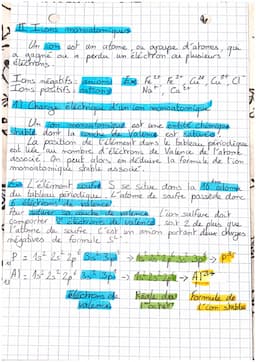 II Ions monoatomiques
Un ion est un atome, ou groupe d'atomes, qui
a gagné ou a perdu un électron ou plusieurs
électrons.
Ions négatifs: anions Ex Fe²⁺ Fe³⁺, Cu²⁺, Cu⁺ Cl⁻
Ions positifs: cations Na⁺, Ca²⁺
1) Charge électrique d'un ion monoatomique
Un ion monoatomique est une entité chimique
stable dont la couche de valence est saturée.
La position de l'élément dans le tableau périodique
est liée au nombre d'électrons de valence de l'atome
associé. On peut alors en déduire la formule de l'ion
monoatomique stable associé.
L'élément soufre S se situe dans la 16 colonne
du tableau périodique. L'atome de soufre possède donc
6 électrons de valence.
Pour saturer sa couche de valence l'ion sulfure doit
comporter électrons de valence, soit 2 de plus que
l'atome de soufre. C'est un anion portant deux charges
négatives de formule S²⁻
P = 1s² 2s² 2p⁶ 3s² 3p³ → 3p⁶ → P³⁻
Al = 1s² 2s² 2p⁶ 3s² 3p¹ → → Al³⁺
électrons de Règle de Formule de
valence l'octet l'ion stable